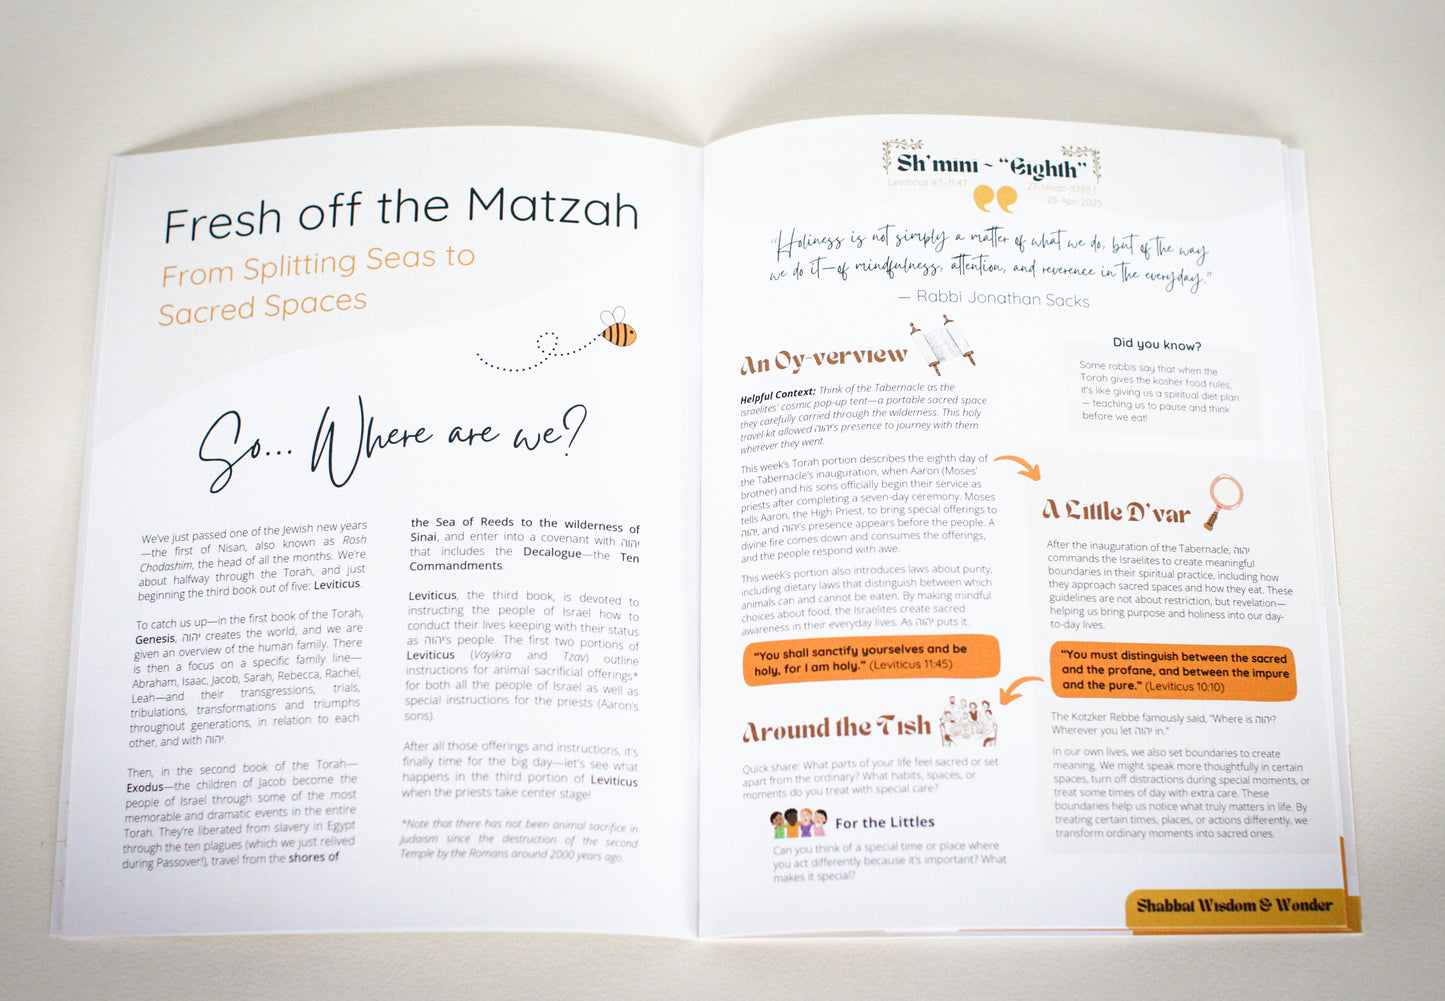 Fresh off the Matzah
From Splitting Seas to
Sacred Spaces
So... Where are we?
We've just passed one of the Jewish new years
—the first of Nisan, also known as Rosh
Chodashim, the head of all the months. We're
about halfway through the Torah, and just
beginning the third book out of five: Leviticus.
To catch us up—in the first book of the Torah,
Genesis, יהוה creates the world, and we are
given an overview of the human family. There
is then a focus on a specific family line—
Abraham, Isaac, Jacob, Sarah, Rebecca, Rachel,
Leah—and their transgressions, trials,
tribulations, transformations and triumphs
throughout generations, in relation to each
other, and with יהוה.
Then, in the second book of the Torah—
Exodus—the children of Jacob become the
people of Israel through some of the most
memorable and dramatic events in the entire
Torah. They're liberated from slavery in Egypt
through the ten plagues (which we just relived
during Passover!), travel from the shores of
the Sea of Reeds to the wilderness of
Sinai, and enter into a covenant with יהוה
that includes the Decalogue—the Ten
Commandments.
Leviticus, the third book, is devoted to
instructing the people of Israel how to
conduct their lives keeping with their status
as יהוה's people. The first two portions of
Leviticus (Vayikra and Tzav) outline
instructions for animal sacrificial offerings*
for both all the people of Israel as well as
special instructions for the priests (Aaron's
sons).
After all those offerings and instructions, it's
finally time for the big day—let's see what
happens in the third portion of Leviticus
when the priests take center stage!
*Note that there has not been animal sacrifice in
Judaism since the destruction of the second
Temple by the Romans around 2000 years ago.
Sh'mini ~ "Eighth"
Leviticus 9:1-11:47
27-Nisan-5785 |
25-Apr-2025
"Holiness is not simply a matter of what we do, but of the way
we do it—of mindfulness, attention, and reverence in the everyday."
— Rabbi Jonathan Sacks
An Oy-verview
Helpful Context: Think of the Tabernacle as the
Israelites' cosmic pop-up tent—a portable sacred space
they carefully carried through the wilderness. This holy
travel kit allowed יהוה's presence to journey with them
wherever they went.
This week's Torah portion describes the eighth day of
the Tabernacle's inauguration, when Aaron (Moses'
brother) and his sons officially begin their service as
priests after completing a seven-day ceremony. Moses
tells Aaron, the High Priest, to bring special offerings to
יהוה, and יהוה's presence appears before the people. A
divine fire comes down and consumes the offerings,
and the people respond with awe.
This week's portion also introduces laws about purity,
including dietary laws that distinguish between which
animals can and cannot be eaten. By making mindful
choices about food, the Israelites create sacred
awareness in their everyday lives. As יהוה puts it:
"You shall sanctify yourselves and be
holy, for I am holy." (Leviticus 11:45)
Around the Tish
Quick share: What parts of your life feel sacred or set
apart from the ordinary? What habits, spaces, or
moments do you treat with special care?
For the Littles
Can you think of a special time or place where
you act differently because it's important? What
makes it special?
Did you know?
Some rabbis say that when the
Torah gives the kosher food rules,
it's like giving us a spiritual diet plan
— teaching us to pause and think
before we eat!
A Little D'var
After the inauguration of the Tabernacle, יהוה
commands the Israelites to create meaningful
boundaries in their spiritual practice, including how
they approach sacred spaces and how they eat. These
guidelines are not about restriction, but revelation—
helping us bring purpose and holiness into our day-
to-day lives.
"You must distinguish between the sacred
and the profane, and between the impure
and the pure." (Leviticus 10:10)
The Kotzker Rebbe famously said, "Where is יהוה?
Wherever you let יהוה in."
In our own lives, we also set boundaries to create
meaning. We might speak more thoughtfully in certain
spaces, turn off distractions during special moments, or
treat some times of day with extra care. These
boundaries help us notice what truly matters in life. By
treating certain times, places, or actions differently, we
transform ordinary moments into sacred ones.
Shabbat Wisdom & Wonder